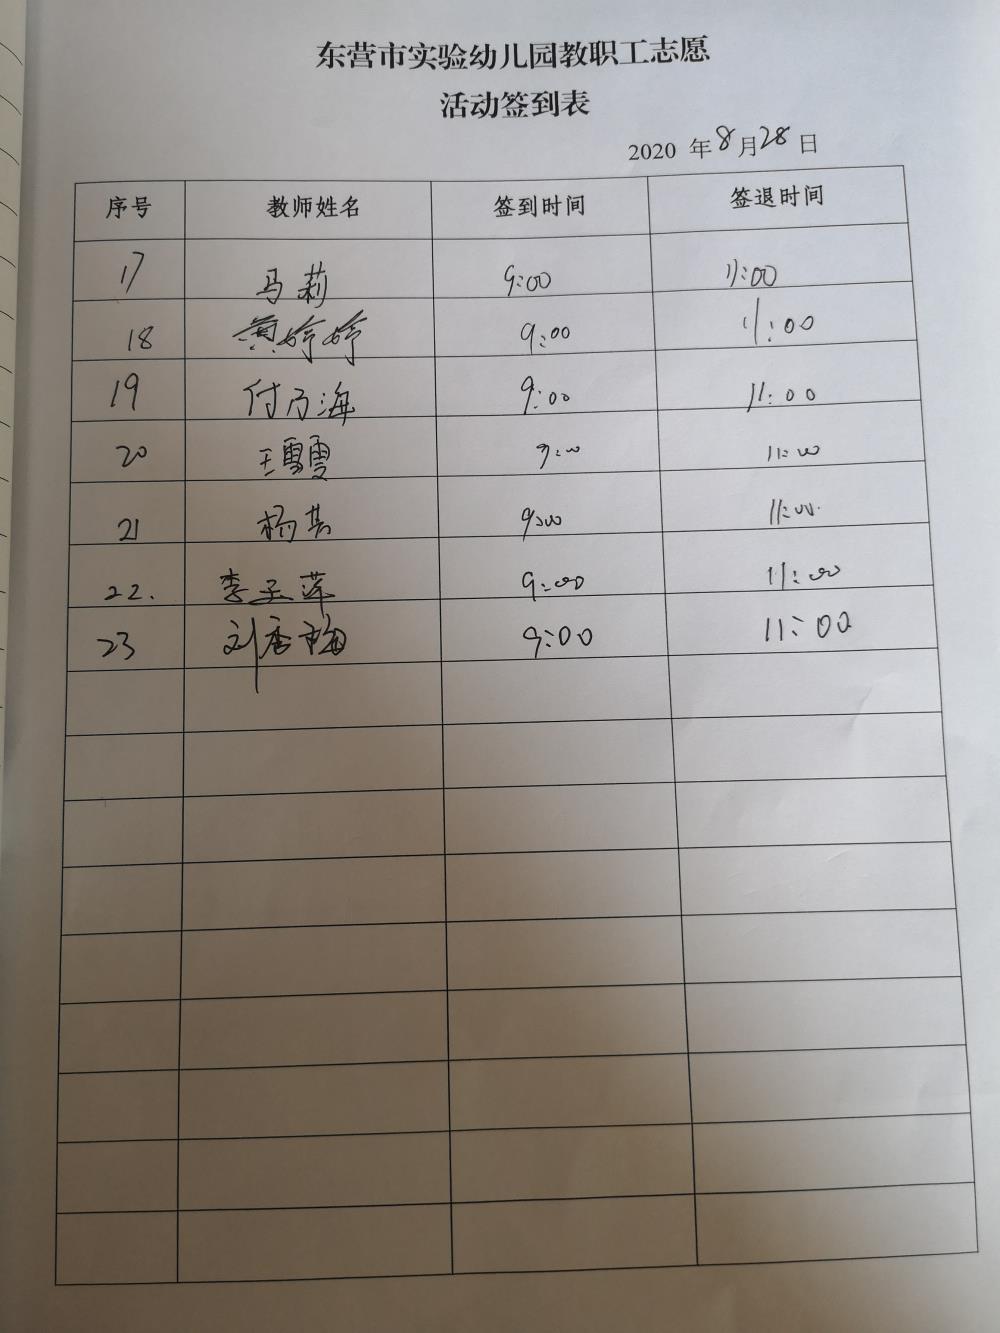 东营市实验幼儿园教职工志愿
活动签到表
2020 年8月28日
序号 教师姓名 签到时间 签退时间
17 马莉 9:00 11:00
18 黄婷婷 9:00 11:00
19 付乃海 9:00 11:00
20 王雪雯 9:00 11:00
21 杨 9:00 11:00
22. 李玉萍 9:00 11:00
23 刘秀梅 9:00 11:00